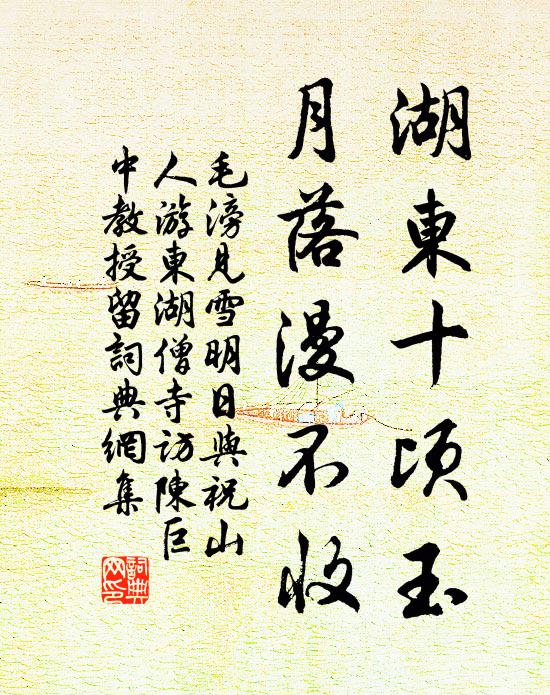 湖東十頃玉
月落漫不收
毛滂見雪明日與祝山
人游東湖僧寺訪陳巨
中教授留詞典網集
詞典
网印